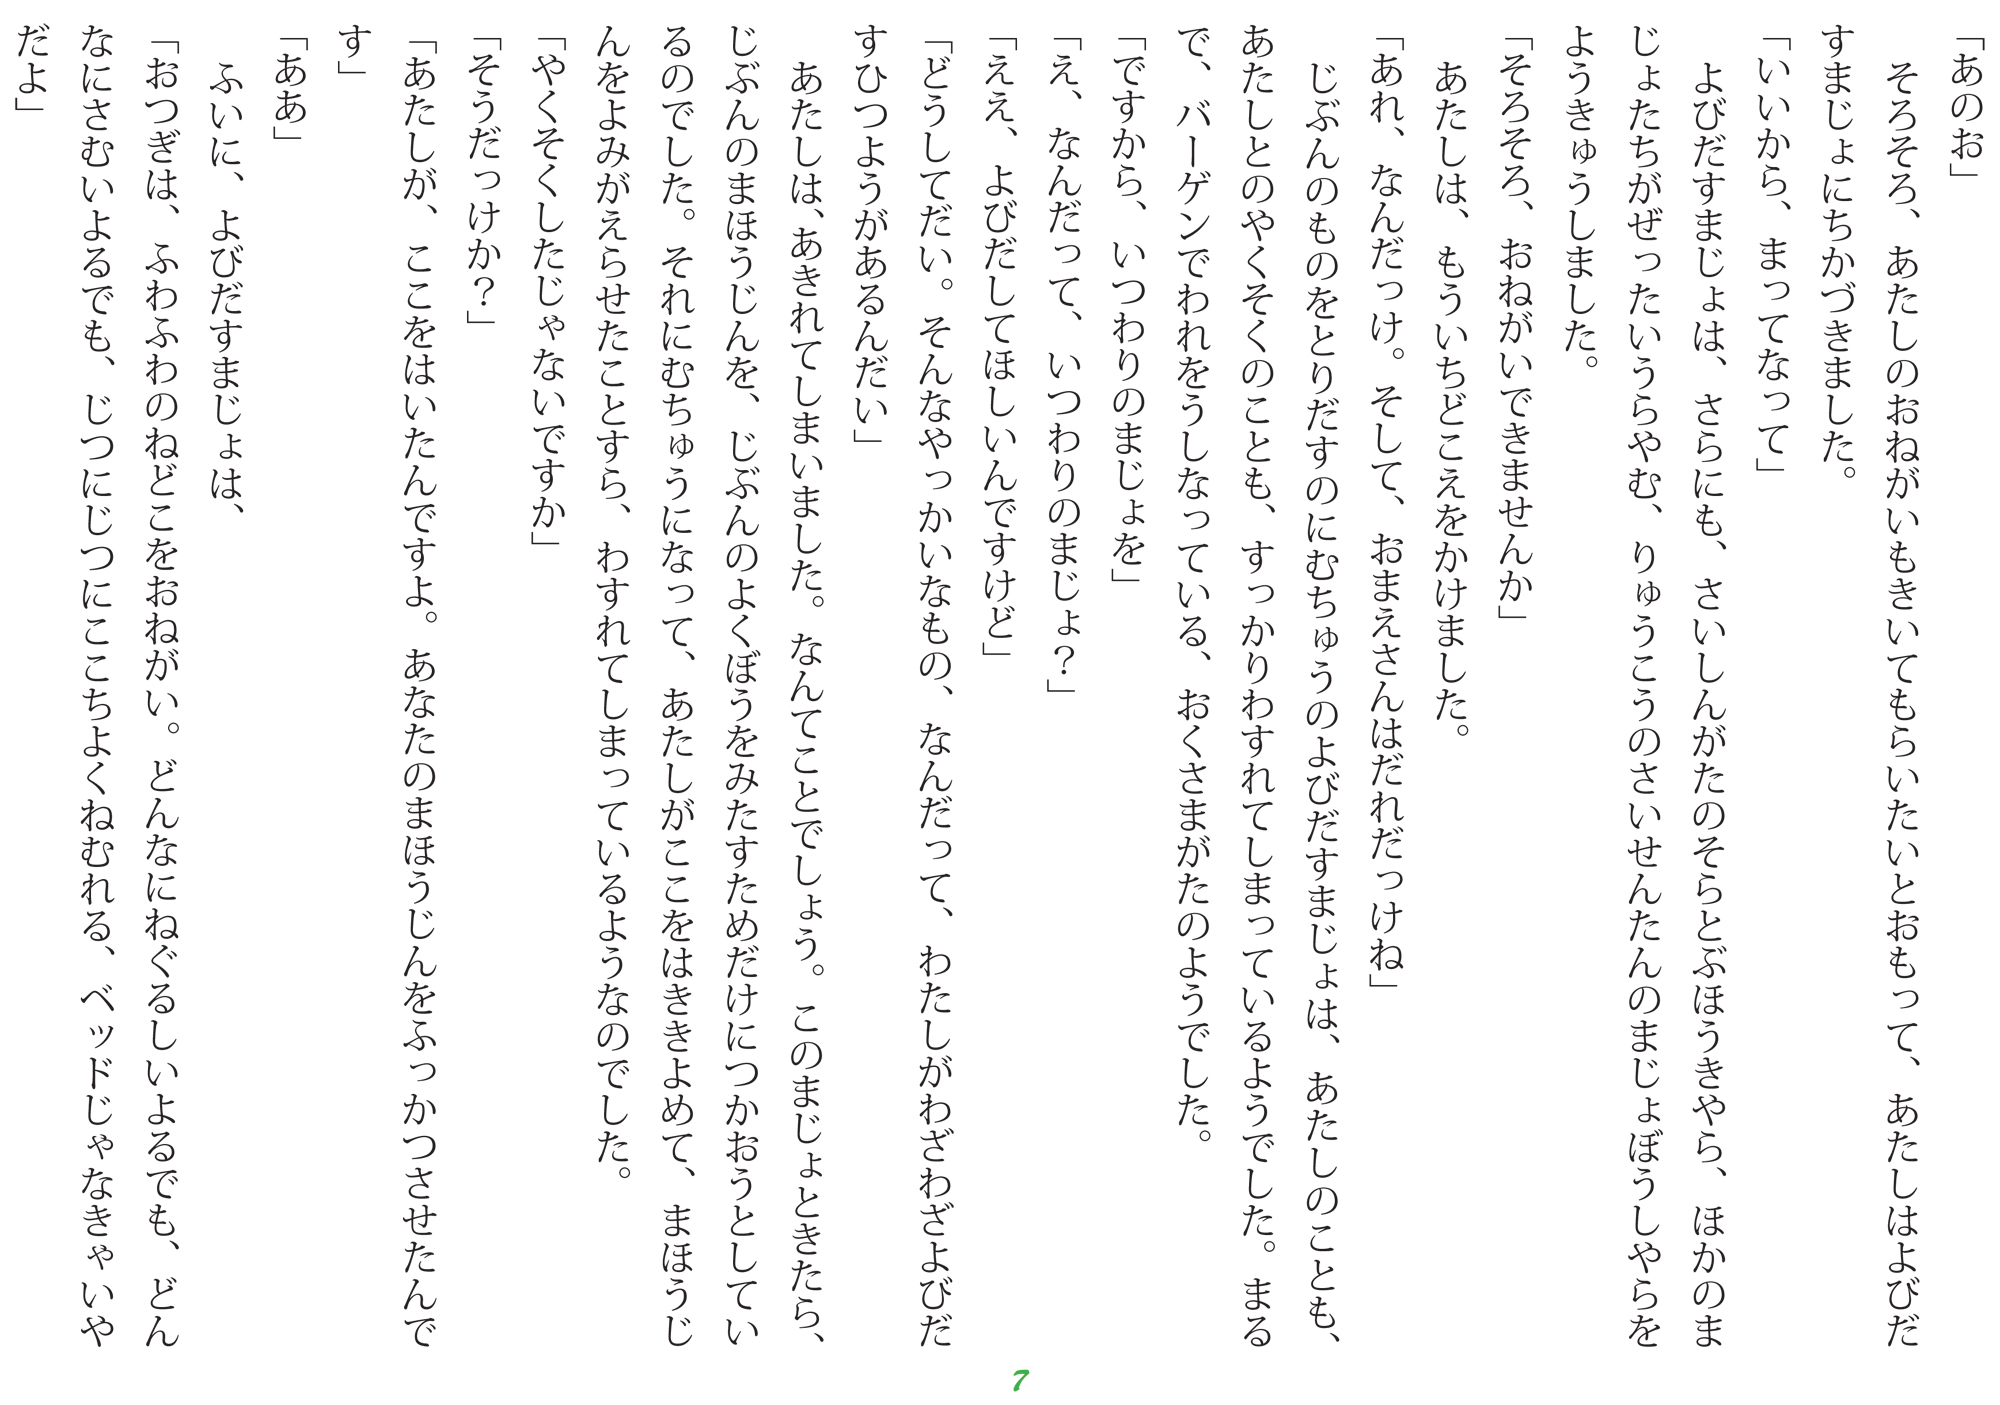 「あのお」
　そろそろ、あたしのおねがいもきいてもらいたいとおもって、あたしはよびだ
すまじょにちかづきました。
「いいから、まってなって」
　よびだすまじょは、さらにも、さいしんがたのそらとぶほうきやら、ほかのま
じょたちがぜったいうらやむ、りゅうこうのさいせんたんのまじょぼうしやらを
ようきゅうしました。
「そろそろ、おねがいできませんか」
　あたしは、もういちどこえをかけました。
「あれ、なんだっけ。そして、おまえさんはだれだっけね」
　じぶんのものをとりだすのにむちゅうのよびだすまじょは、あたしのことも、
あたしとのやくそくのことも、すっかりわすれてしまっているようでした。まる
で、バーゲンでわれをうしなっている、おくさまがたのようでした。
「ですから、いつわりのまじょを」
「え、なんだって、いつわりのまじょ？」
「ええ、よびだしてほしいんですけど」
「どうしてだい。そんなやっかいなもの、なんだって、わたしがわざわざよびだ
すひつようがあるんだい」
　あたしは、あきれてしまいました。なんてことでしょう。このまじょときたら、
じぶんのまほうじんを、じぶんのよくぼうをみたすためだけにつかおうとしてい
るのでした。それにむちゅうになって、あたしがここをはききよめて、まほうじ
んをよみがえらせたことすら、わすれてしまっているようなのでした。
「やくそくしたじゃないですか」
「そうだっけか？」
「あたしが、ここをはいたんですよ。あなたのまほうじんをふっかつさせたんで
す」
「ああ」
　ふいに、よびだすまじょは、
「おつぎは、ふわふわのねどこをおねがい。どんなにねぐるしいよるでも、どん
なにさむいよるでも、じつにじつにここちよくねむれる、ベッドじゃなきゃいや
だよ」
7